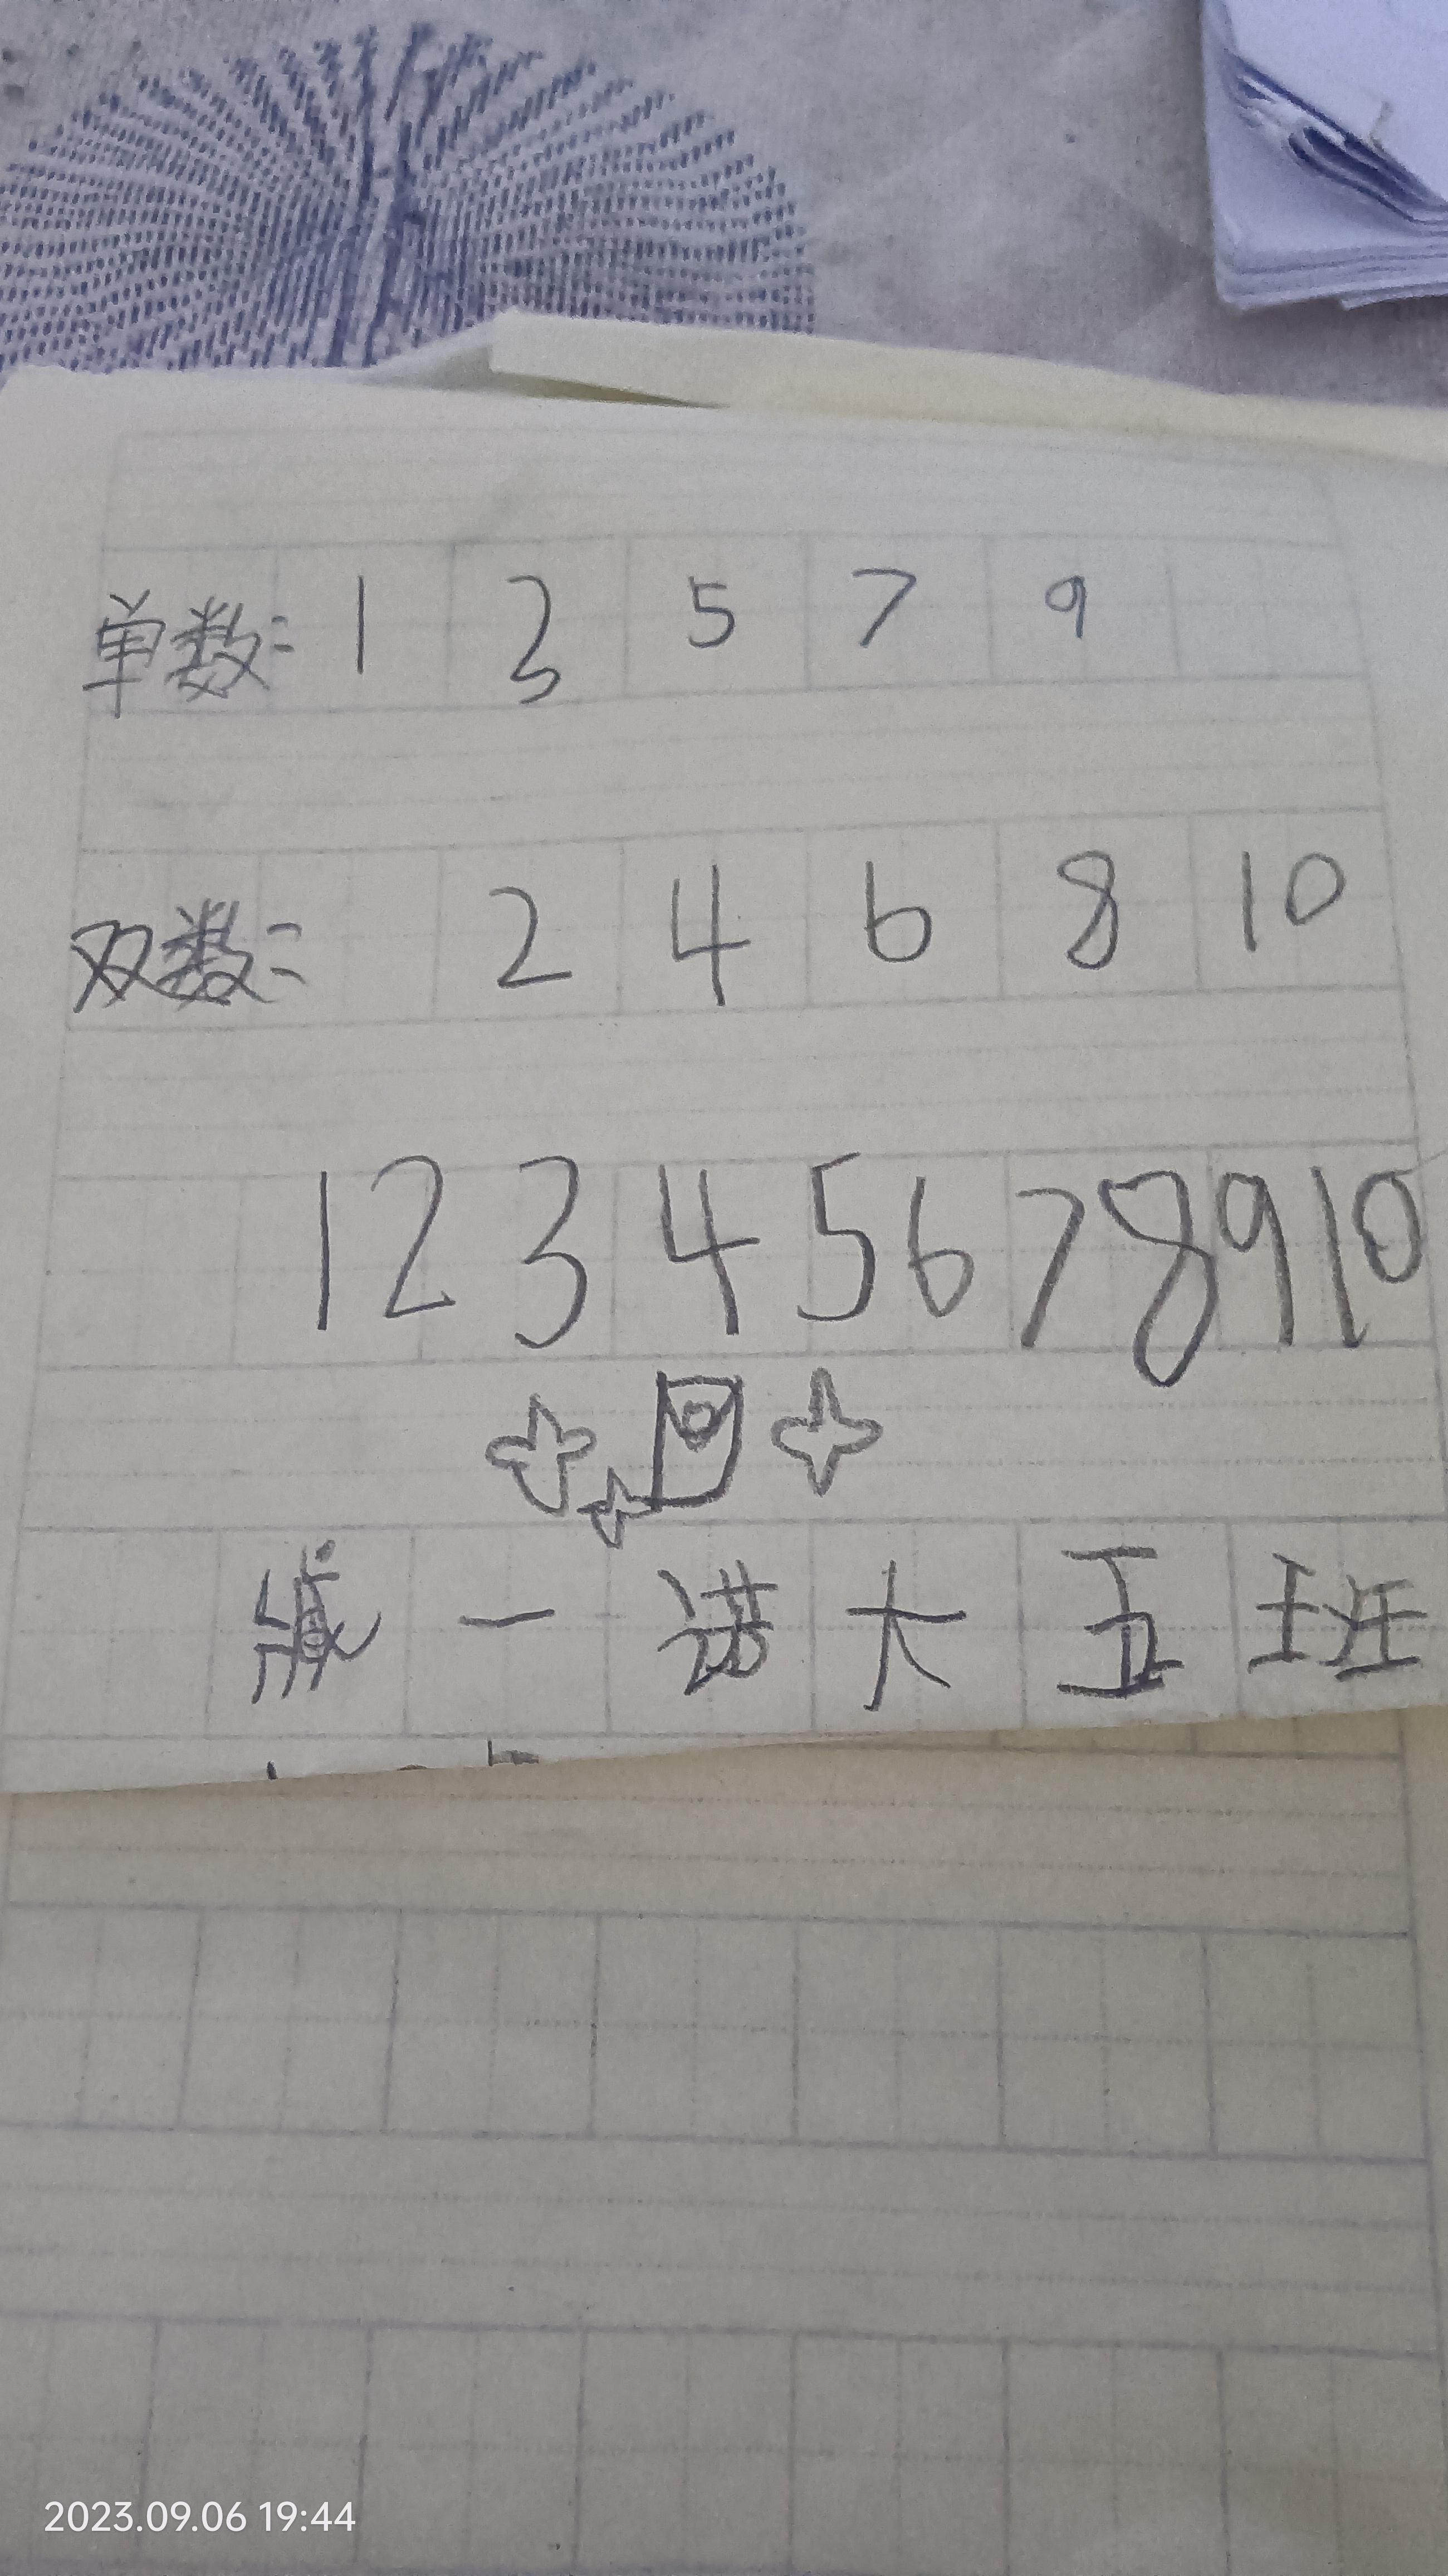 单数: 1 3 5 7 9
双数: 2 4 6 8 10
1 2 3 4 5 6 7 8 9 10
一诺大五班
2023.09.06 19:44